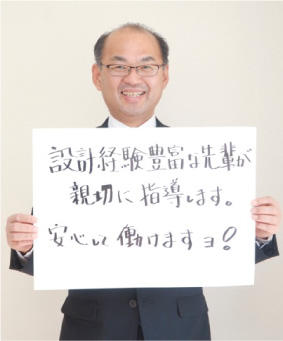 設計経験豊富な先輩が
親切に指導します。
安心して働けますヨ!